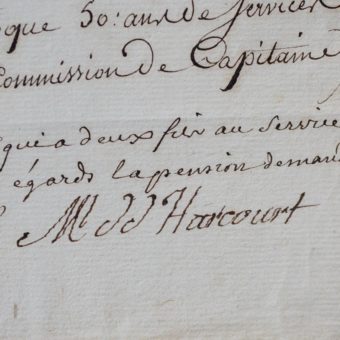 que 50: ans de services
Commission de Capitaine
qui a deux fils au service
égards la pension deman
M. d'Harcourt